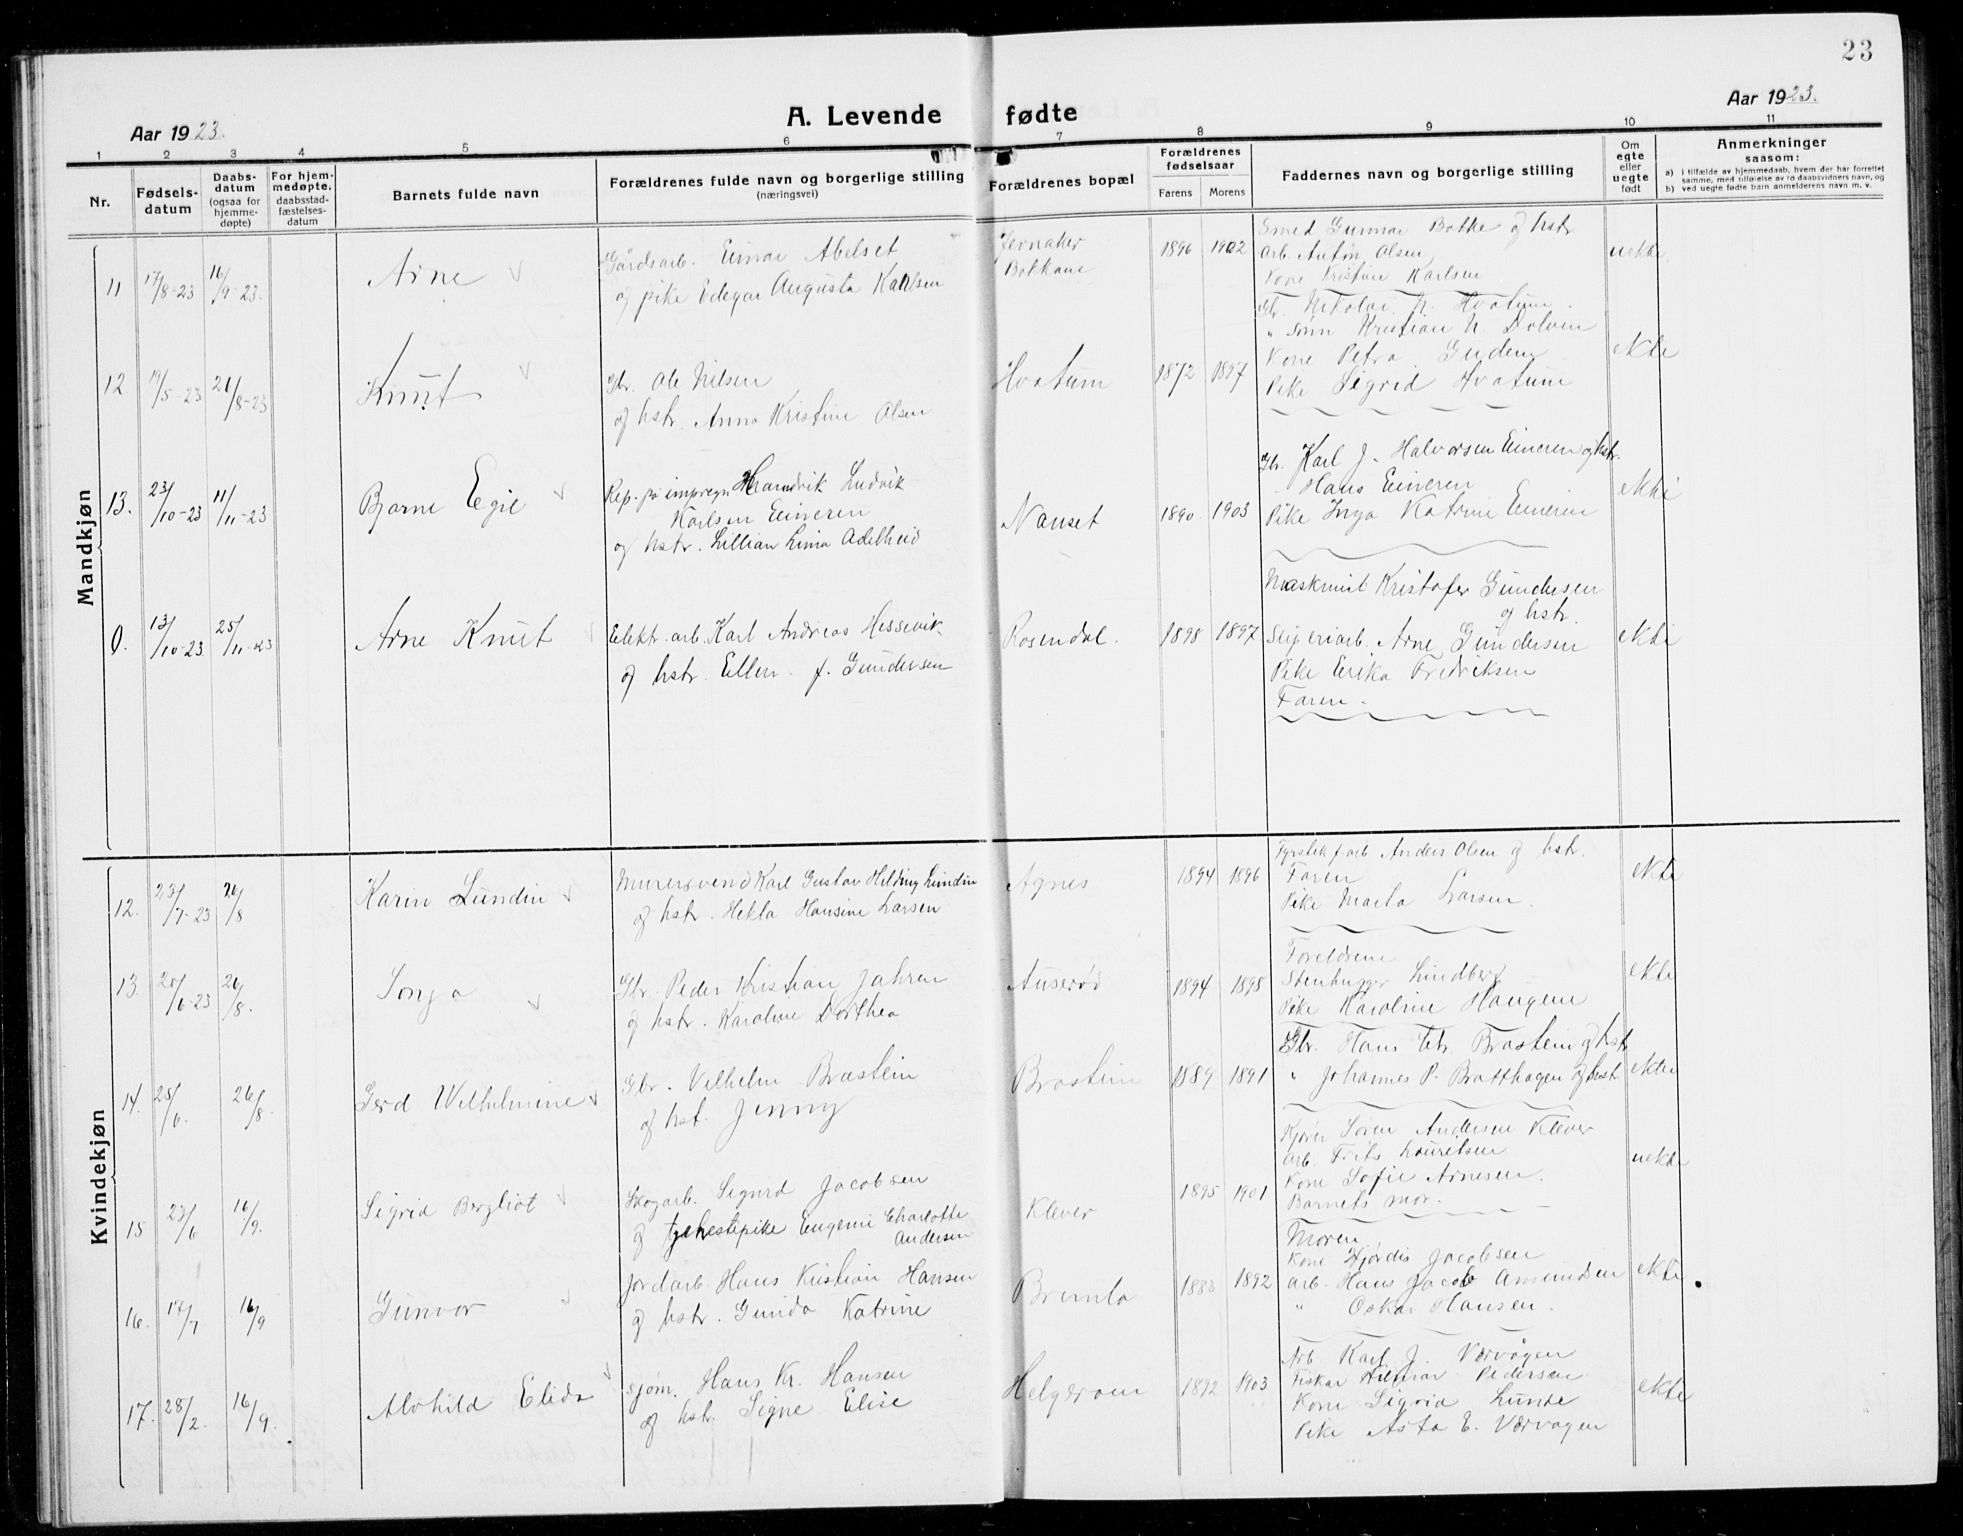 23
Aar 1923.
A. Levende
fødte
Aar 1923.
1 2 3 4 5 6 7 8 9 10 11
Nr.
Fødsels-
datum
Daabs-
datum
(ogsaa for
hjemme-
døpte)
For hjem-
medøpte,
daabsstad-
fæstelses-
datum
Barnets fulde navn
Forældrenes fulde navn og borgerlige stilling
(næringsvei)
Forældrenes bopæl
Forældrenes
fødselsaar
Farens
Morens
Faddernes navn og borgerlige stilling
Om
egte
eller
uegte
født
Anmerkninger
saasom:
a) i tilfælde av hjemmedaab, hvem der har forrettet
samme, med tilføielse av to daabsvidners navn, og
b) ved uegte fødte barn anmelderens navn m. v.
Mandkjøn
11
17/8-23
16/9-23.
Arne
Gårdsarb. Einar Abelset
og pike Edegar Augusta Karlsen
Jernaker
Bokkane
1896
1902
Smed Gunnar Bakke og hstr
arb. Anton Olsen
Kone Kristine Karlsen
uekte
12
19/5-23
21/8-23
Knut
Gbr. Ole Nilsen
og hstr. Anna Kristine Olsen
Hvatum
1872
1897
Gbr. Nikolai N. Hvatum.
" sønn Kristian N. Dolven
Kone Petra Gudem
Pike Sigrid Hvatum
ekte
13.
23/10-23
11/11-23
Bjarne Egil
Rep. på impregn Ludvik
Karlsen Eineren
og hstr. Lillian Lina Adelheid
Nanset
1890
1903
Gbr. Karl J. Halvorsen Eineren og hstr.
Hans Eineren
Pike Inga Katrine Eineren
ekte
0.
13/10-23
25/11-23
Arne Knut
Elektr. arb. Karl Andreas Hessevik
og hstr. Ellen f. Gundersen
Rosendal.
1898
1897
Maskinist Kristofer Gundersen
og hstr.
Sliperiarb. Arne Gundersen
Pike Erika Fredriksen
Faren.
ekte
Kvindekjøn
12.
23/7-23
26/8
Karin Lundin
Murersvend Karl Gustav Hilding Lundin
og hstr. Hekla Hansine Larsen
Agnes
1894
1896
Fyrstikf. arb Anders Olsen og hstr.
Faren
Pike Marta Larsen.
ekte
13.
20/6-23
26/8.
Sonja
Gbr. Peder Kristian Jahren
og hstr. Karoline Dorthea
Auserød
1894
1898
Foreldrene
Stenhugger Lindberg
Pike Karoline Haugene
ekte
14.
25/6.
26/8.
Gerd Wilhelmine
Gbr. Vilhelm Brastein
og hst. Jenny
Brastein
1889
1891
Gbr. Hans Chr. Brastein og hstr
" Johannes P. Bratthagen og hust
ekte
15
23/6
16/9.
Sigrid Bergliot
Skogarb. Sigurd Jacobsen
og tjenestepike Eugenie Charlotte
Andersen
Klever
1895
1901
Kjører Søren Andersen Klever
arb. Frits Lauritsen
Kone Sofie Arnesen.
Barnets mor.
uekte
16.
17/7
16/9
Gunvor
Jordarb. Hans Kristian Hansen
og hstr. Gunda Katrine
Bremla
1892
Moren
Kone Hjørdis Jacobsen
arb. Hans Jacob Amundsen
" Oskar Hansen.
ekte
17.
28/2.
16/9.
Alvhild Elida
sjøm. Hans Kr. Hansen
og hstr. Signe Elise
Helgerøen
1892
1903
Arb. Karl J. Værvågen
Fisker Hilmar Pedersen
Kone Sigrid Lunde
Pike Asta E. Værvagen
ekte